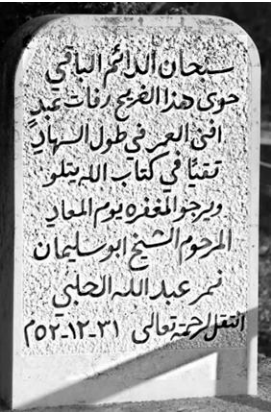 سبحان الدائم الباقي
حوى هذا الضريح رفات عبدٍ
افنى العمر في طول السهادِ
تقيًا في كتاب الله يتلو
ويرجو المغفره يوم المعادِ
المرحوم الشيخ ابو سليمان
نمر عبد الله الحلبي
انتقل لرحمة تعالى ٣١-١٢-٥٢م